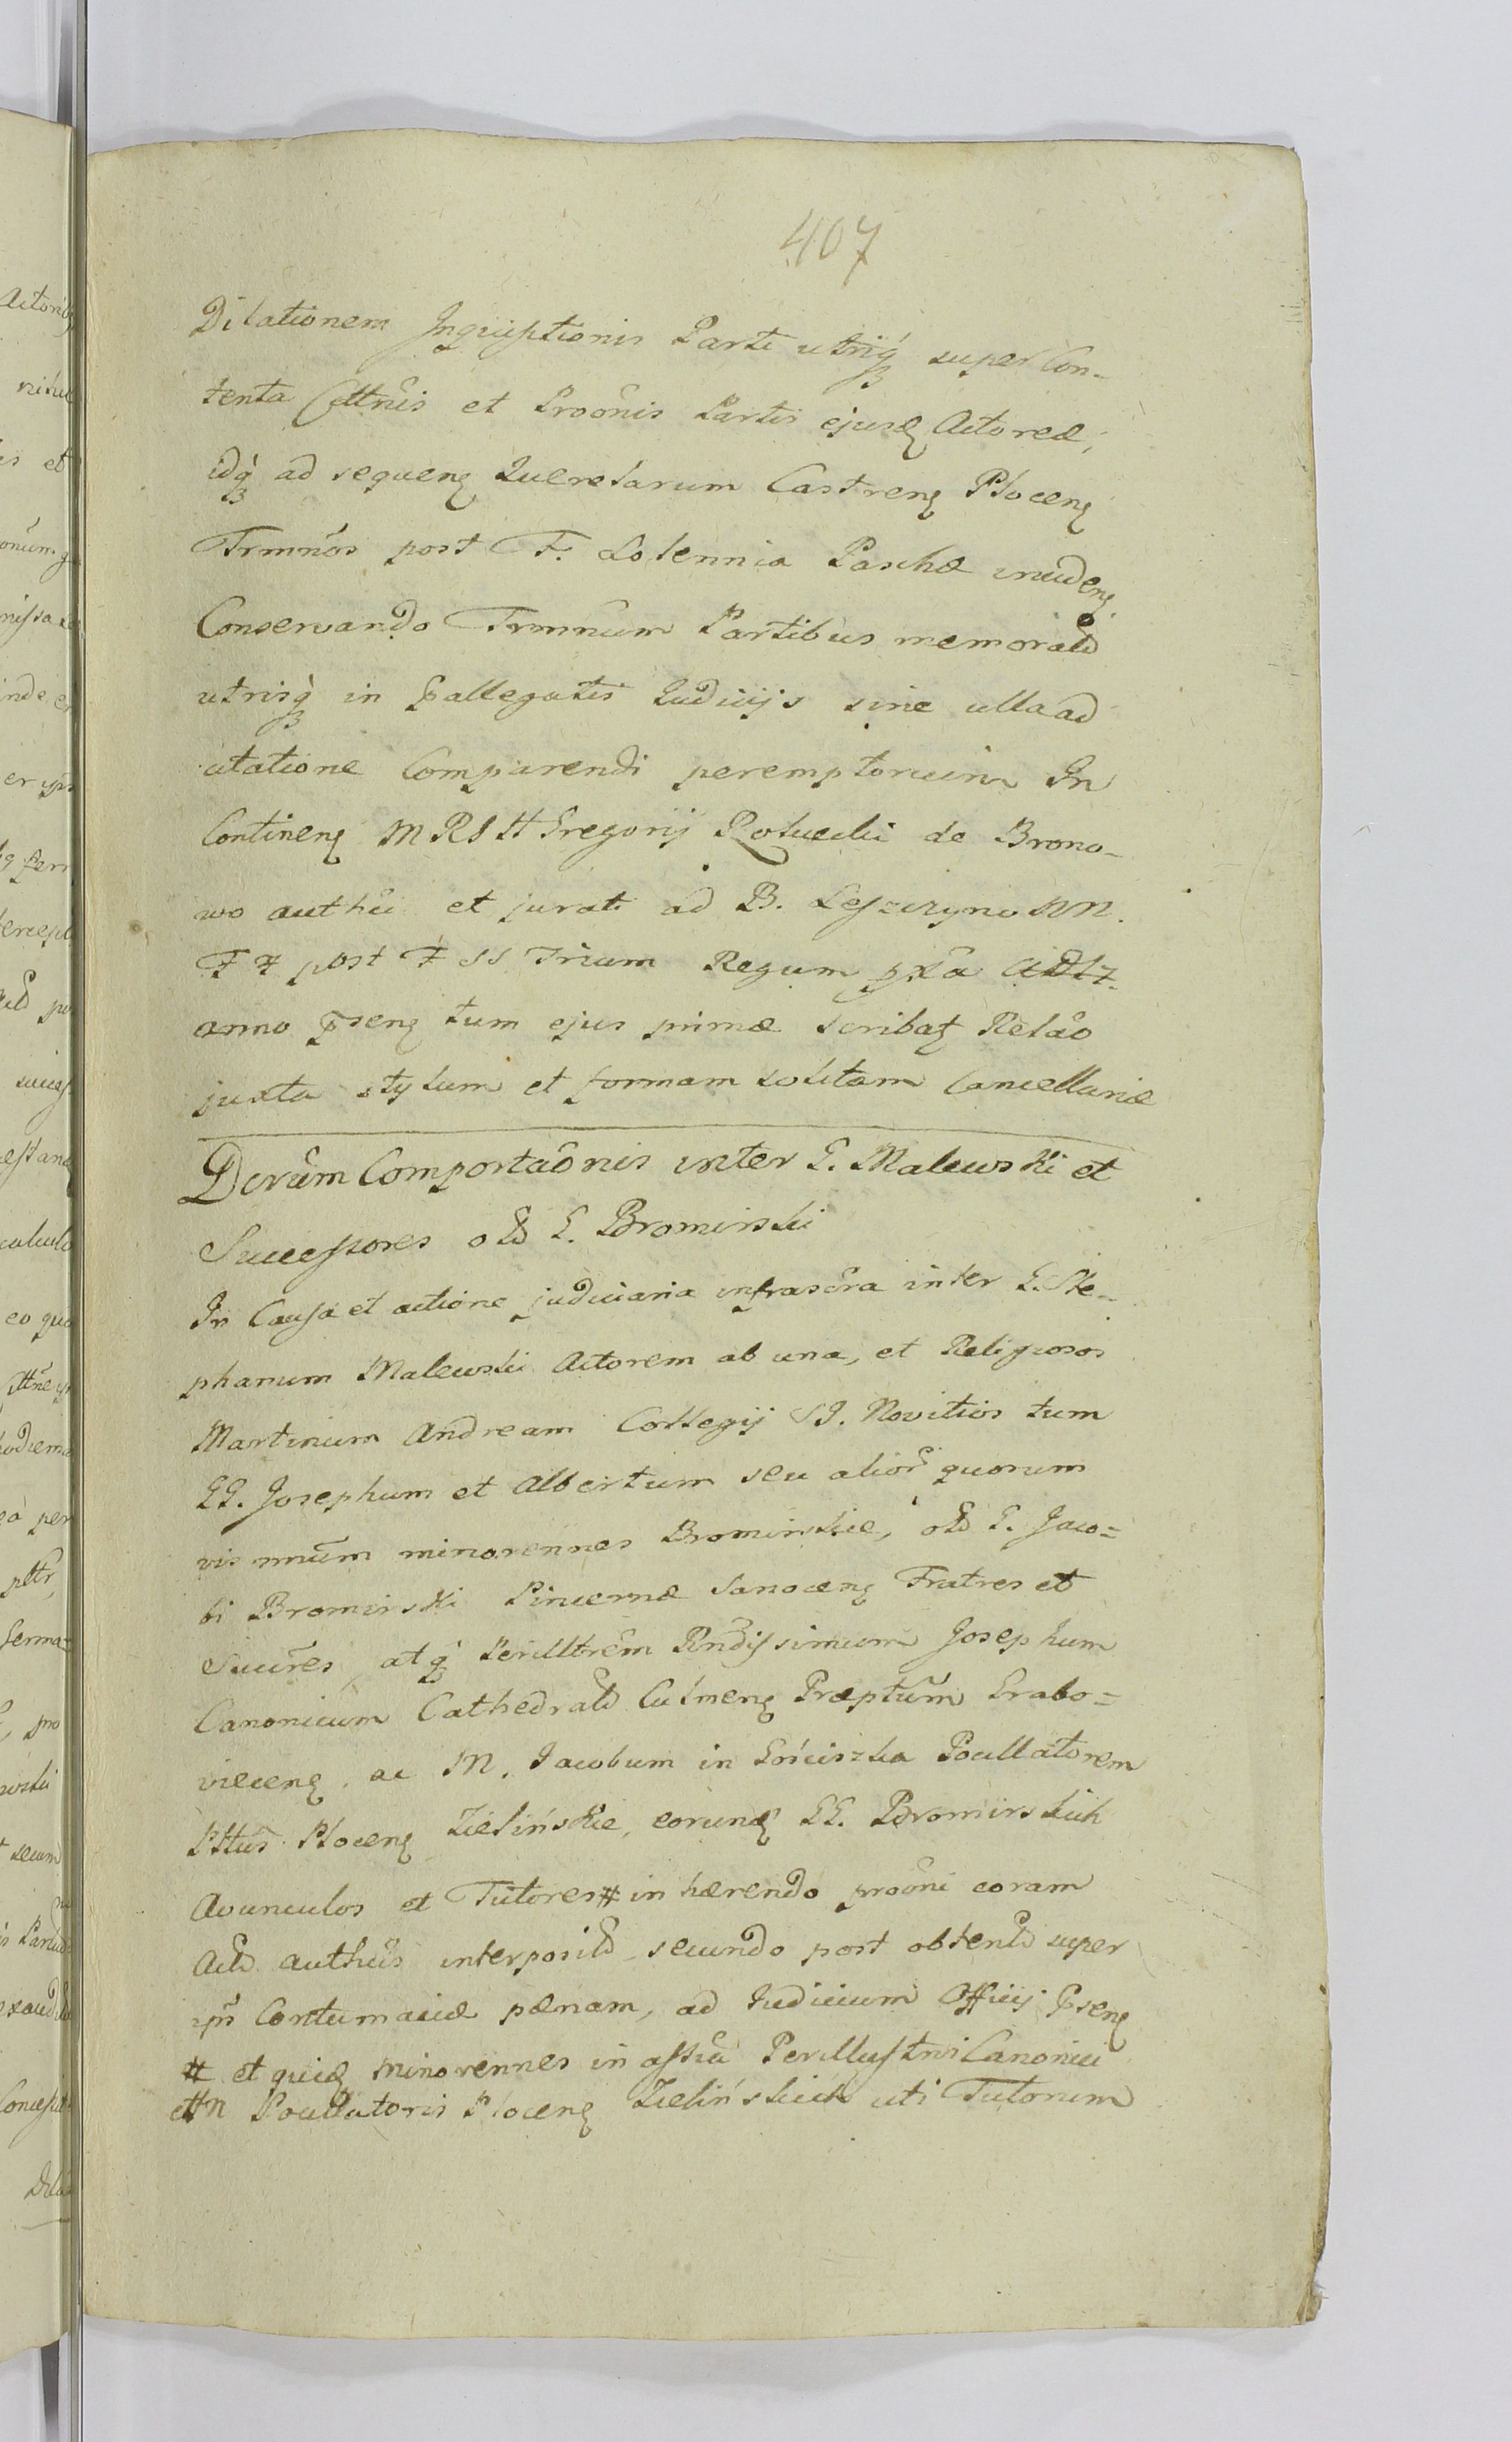 407
Dilationem Inquisitionis Parti utriq́ super Con-
tenta Cittñis et Prooñis Partis ejusq Actoreæ,
idq́ ad sequenq Querelarum Castrenq Plocenq
Trmños post F. Solennia Paschæ incidenq.
Conservando Trmnum Partibus memoratis
utrisq́ in pallegatis Judicijs sine ulla ad
citatione Comparendi peremptorium In
Continenq M R S H Gregorij de Brono-
wo authĉi et jurati ad B. Leszczyno NN.
F post F SS Trium Regum pxa
anno pñsenq tum ejus primæ scribatq Relaõ
juxta stylum et formam solitam Cancellariæ
Dcrẽtum Comportaõnis inter G. Malewski et
Successores olim G. Bromirski
In Causa et actione judiciaria infrascra inter G. Ste-
phanum Malewski Actorem ab una, et Religiosos
Martinum Andream Collegij SJ. Novitios tum
GG. Josephum et Albertum seu alior̃ quorum
vis nñum minorennes Bromirskie, olim G. Jaco=
bi Bromirski Pincernæ Sanocenq Fratres et
Succr̃es, atq́ Perilltrẽm Rñdissimum Josephum
Canonicum Cathedralem Culmenq Præptũm Grabo=
viecenq, ac M. Jacobum in Gościszka Pocillatorem
Plttus Plocenq Zielińskie, eorundq GG. Bromirskich
Avunculos et Tutores # in hærendo prooñi coram
Actis authcĩs interpositæ secundo post obtentam super
ipñs Contumaciæ pænam, ad Judicium Officij pñsenq
# et quidq minorennes in assñia Perillustris Canonici
et M Pocillatoris Plocenq Zielińskich uti Tutorum